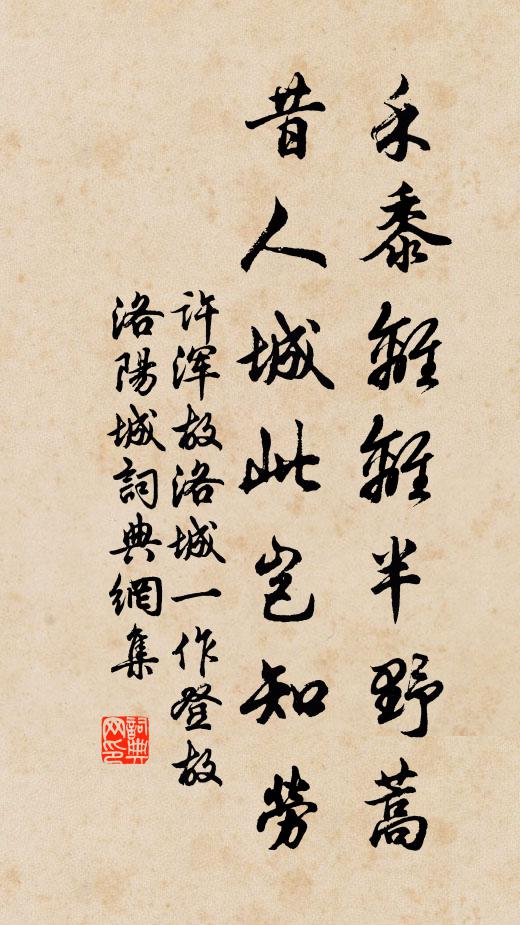 禾黍離離半野蒿
昔人城此岂知勞
许浑故洛城一作登故
洛陽城詞典網集
詞典网印